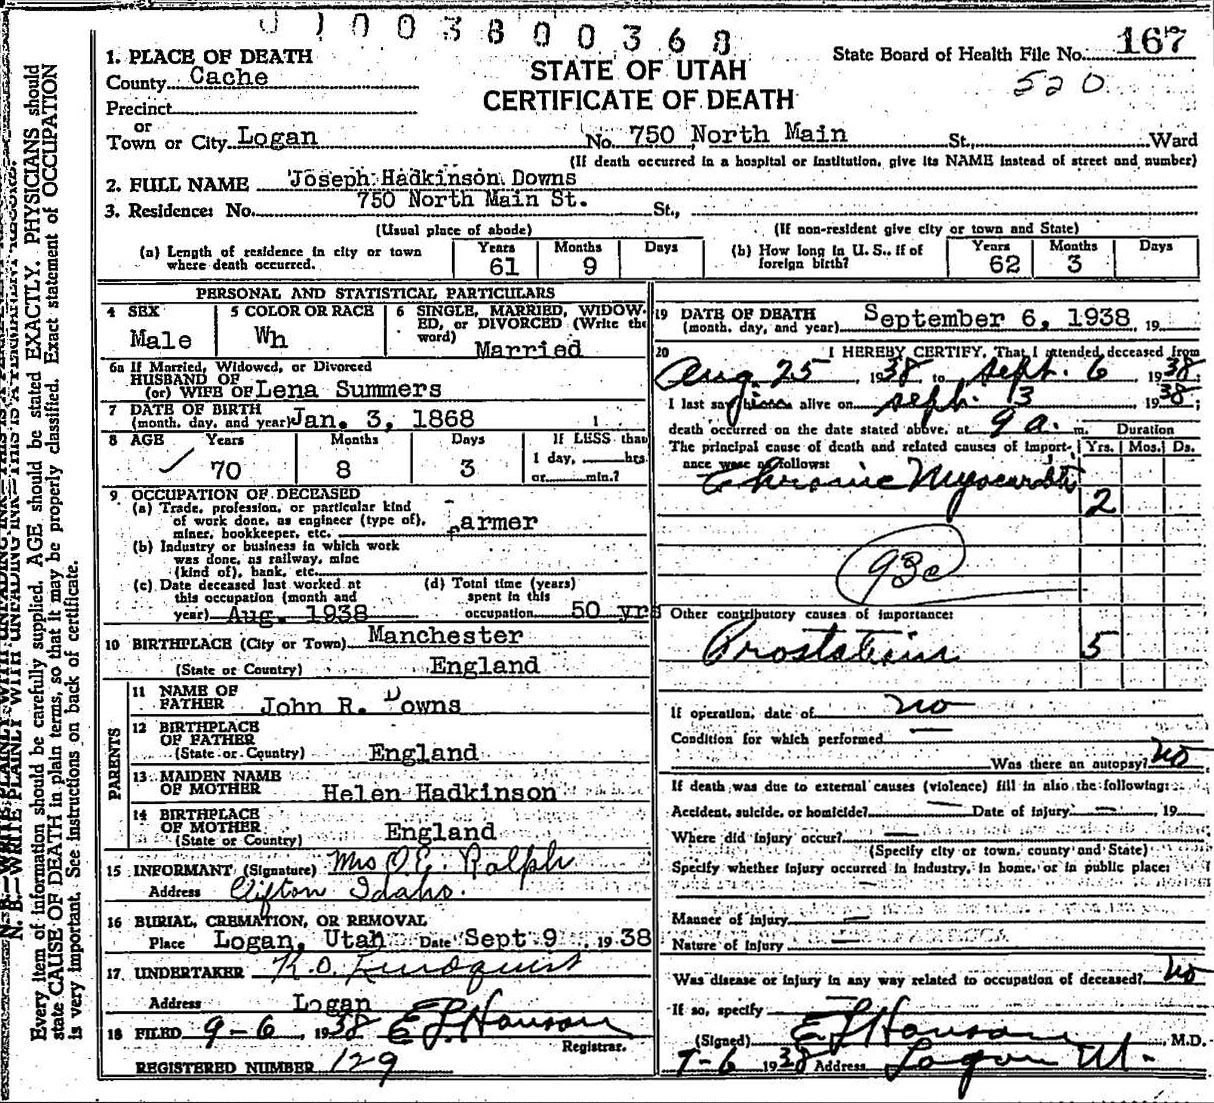 0 1 0 0 3 8 0 0 3 6 8
State Board of Health File No. 167
520
STATE OF UTAH
CERTIFICATE OF DEATH
1. PLACE OF DEATH
County Cache
Precinct
or
Town or City Logan No. 750 North Main St., Ward
(If death occurred in a hospital or institution, give its NAME instead of street and number)
2. FULL NAME Joseph Hadkinson Downs
3. Residence: No. 750 North Main St. St.,
(Usual place of abode) (If non-resident give city or town and State)
(a) Length of residence in city or town where death occurred. Years 61 Months 9 Days
(b) How long in U. S., if of foreign birth? Years 62 Months 3 Days
PERSONAL AND STATISTICAL PARTICULARS
4 SEX Male
5 COLOR OR RACE Wh
6 SINGLE, MARRIED, WIDOWED, or DIVORCED (Write the word) Married
6a If Married, Widowed, or Divorced
HUSBAND OF
(or) WIFE OF Lena Summers
7 DATE OF BIRTH
(month, day, and year) Jan. 3, 1868
8 AGE Years 70 Months 8 Days 3 If LESS than 1 day, hrs. or min.?
9 OCCUPATION OF DECEASED
(a) Trade, profession, or particular kind
of work done, as engineer (type of),
miner, bookkeeper, etc. farmer
(b) Industry or business in which work
was done, as railway, mine
(kind of), bank, etc.
(c) Date deceased last worked at this occupation (month and year) Aug. 1938
(d) Total time (years) spent in this occupation 50 yrs
10 BIRTHPLACE (City or Town) Manchester
(State or Country) England
PARENTS
11 NAME OF FATHER John R. Downs
12 BIRTHPLACE OF FATHER
(State or Country) England
13 MAIDEN NAME OF MOTHER Helen Hadkinson
14 BIRTHPLACE OF MOTHER
(State or Country) England
15 INFORMANT (Signature) Mrs O.E. Ralph
Address Clifton Idaho.
16 BURIAL, CREMATION, OR REMOVAL
Place Logan, Utah Date Sept 9 1938
17 UNDERTAKER K.O. Lindquist
Address Logan
18 FILED 9-6, 1938 E L Hanson
Registrar.
REGISTERED NUMBER 129
19 DATE OF DEATH
(month, day, and year) September 6, 1938, 19
20 I HEREBY CERTIFY, That I attended deceased from
Aug. 25, 1938 to Sept. 6, 1938
I last saw him alive on Sept. 3, 1938;
death occurred on the date stated above, at 9 a. m. Duration
The principal cause of death and related causes of importance were as follows: Yrs. Mos. Ds.
Chronic Myocarditis 2
93c
Other contributory causes of importance:
5
If operation, date of no
Condition for which performed —
Was there an autopsy? No
If death was due to external causes (violence) fill in also the following:
Accident, suicide, or homicide? — Date of injury — , 19
Where did injury occur? —
(Specify city or town, county and State)
Specify whether injury occurred in industry, in home, or in public place:
Manner of injury —
Nature of injury —
Was disease or injury in any way related to occupation of deceased? No
If so, specify —
(Signed) E L Hanson, M.D.
9-6 1938 Address Logan Ut.
N. B.—WRITE PLAINLY WITH UNFADING INK—THIS IS A PERMANENT RECORD.
Every item of information should be carefully supplied. AGE should be stated EXACTLY. PHYSICIANS should
state CAUSE OF DEATH in plain terms, so that it may be properly classified. Exact statement of OCCUPATION
is very important. See instructions on back of certificate.